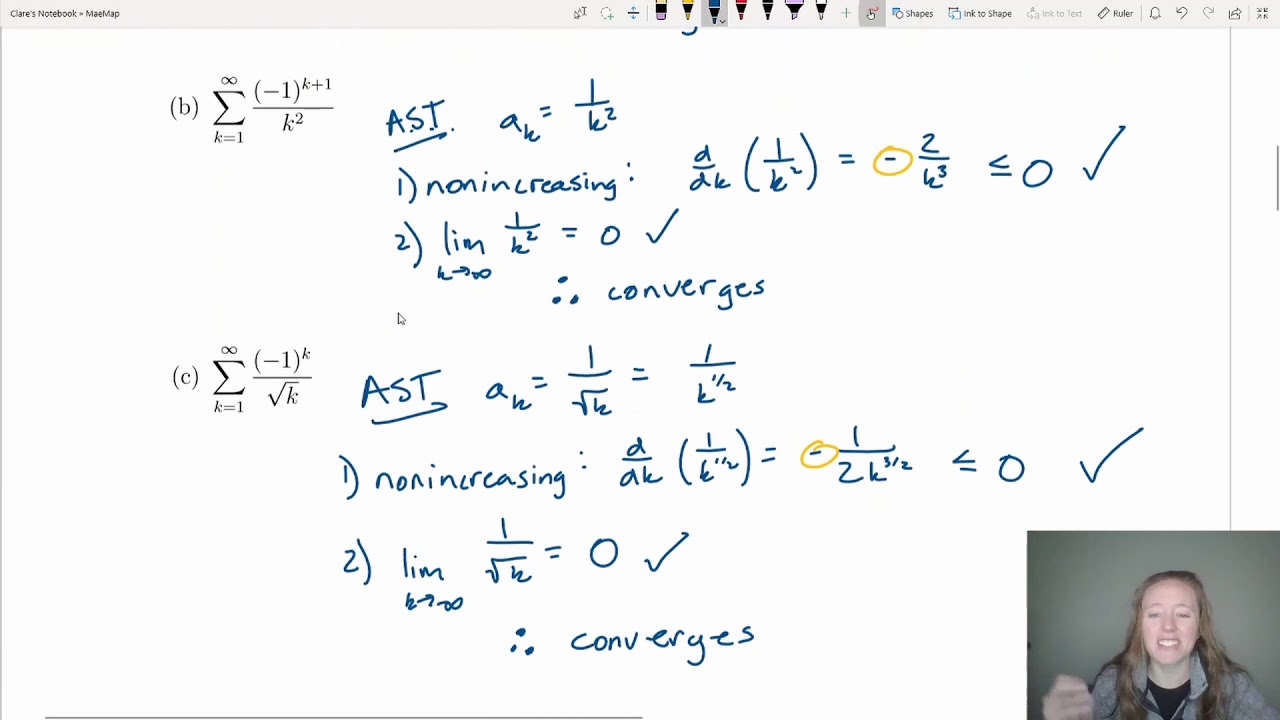 Clare's Notebook » MaeMap
Shapes
Ink to Shape
Ink to Text
Ruler
(b) ∞∑k=1 (-1)^{k+1}/k² A.S.T. a_k = 1/k²
1) nonincreasing: d/dk (1/k²) = - 2/k³ ≤ 0 ✓
2) lim k→∞ 1/k² = 0 ✓
∴ converges
(c) ∞∑k=1 (-1)^k/√k AST a_k = 1/√k = 1/k^{1/2}
1) nonincreasing: d/dk (1/k^{1/2}) = - 1/2k^{3/2} ≤ 0 ✓
2) lim k→∞ 1/√k = 0 ✓
∴ converges